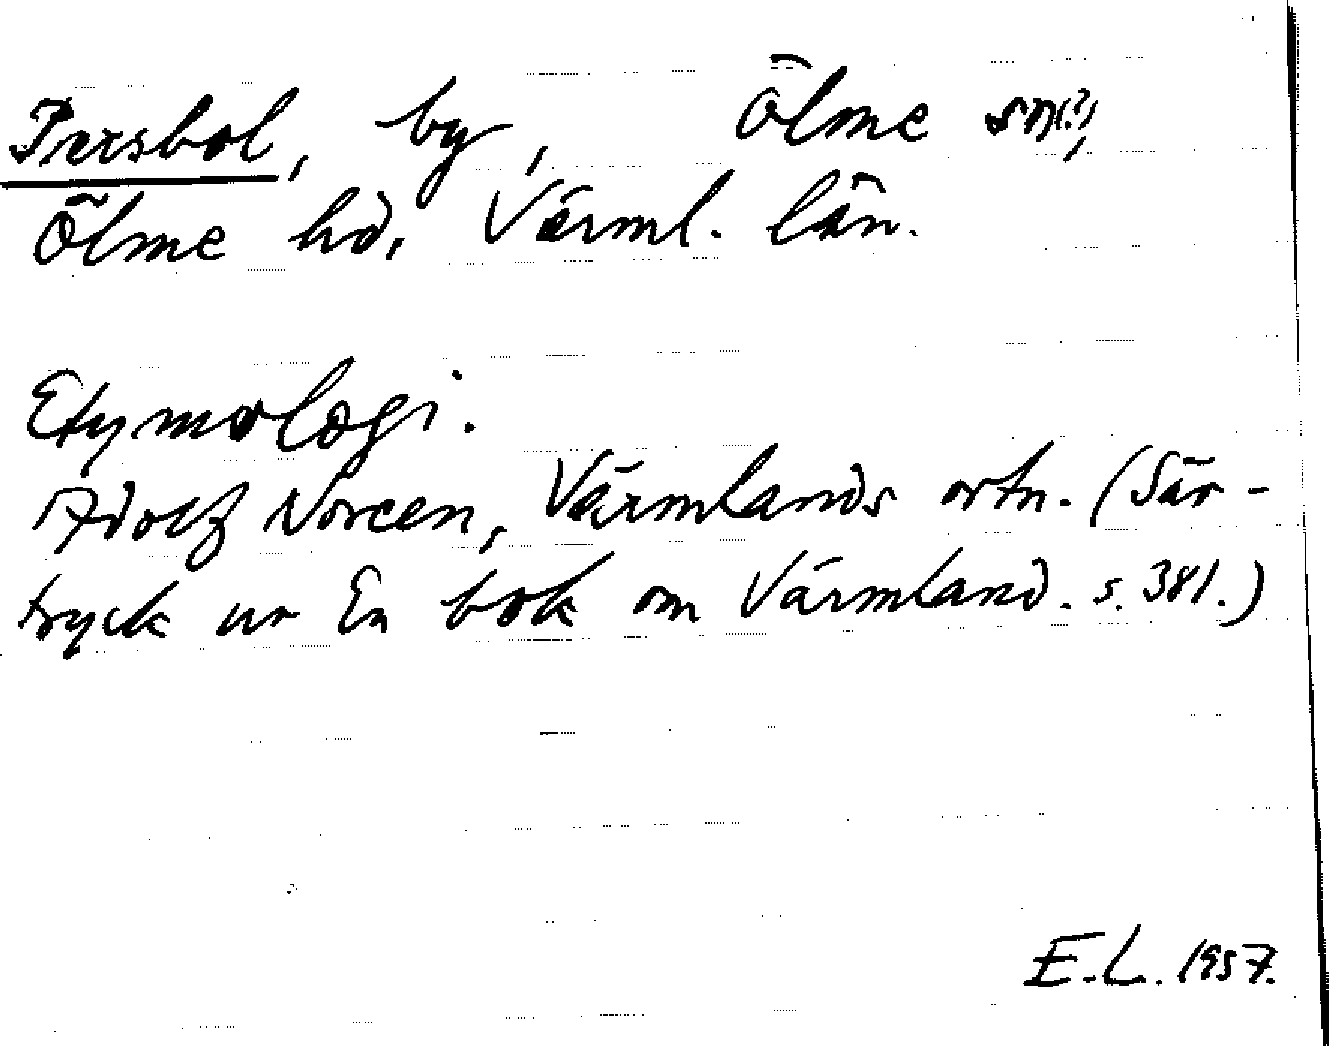 Persbol, by, Ölme sn(?),
Ölme hd, Värml. län.
Etymologi.
Adolf Noreen, Värmlands ortn. (Sär-
tryck ur En bok om Värmland. s. 381.)
E.L. 1957.